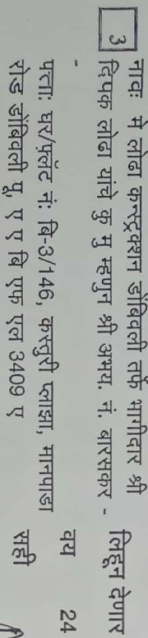 3 नावः मे लोढा कन्स्ट्रक्शन डोंबिवली तर्फे भागीदार श्री
दिपक लोढा यांचे कु मु म्हणुन श्री अभय. नं. बारसकर -
-
पत्ताः घर/फ्लॅट नं: बि-3/146, कस्तुरी प्लाझा, मानपाडा
रोड डोंबिवली पु, ए ए बि एफ एल 3409 ए
लिहून देणार
वय 24
सही